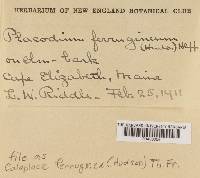 HERBARIUM OF NEW ENGLAND BOTANICAL CLUB
Placodium ferrugineum (Huds.) Hepp
on elm-bark
Cape Elizabeth, Maine
L. W. Riddle - Feb. 25, 1911
file as
Caloplaca ferruginea (Hudson) Th. Fr.